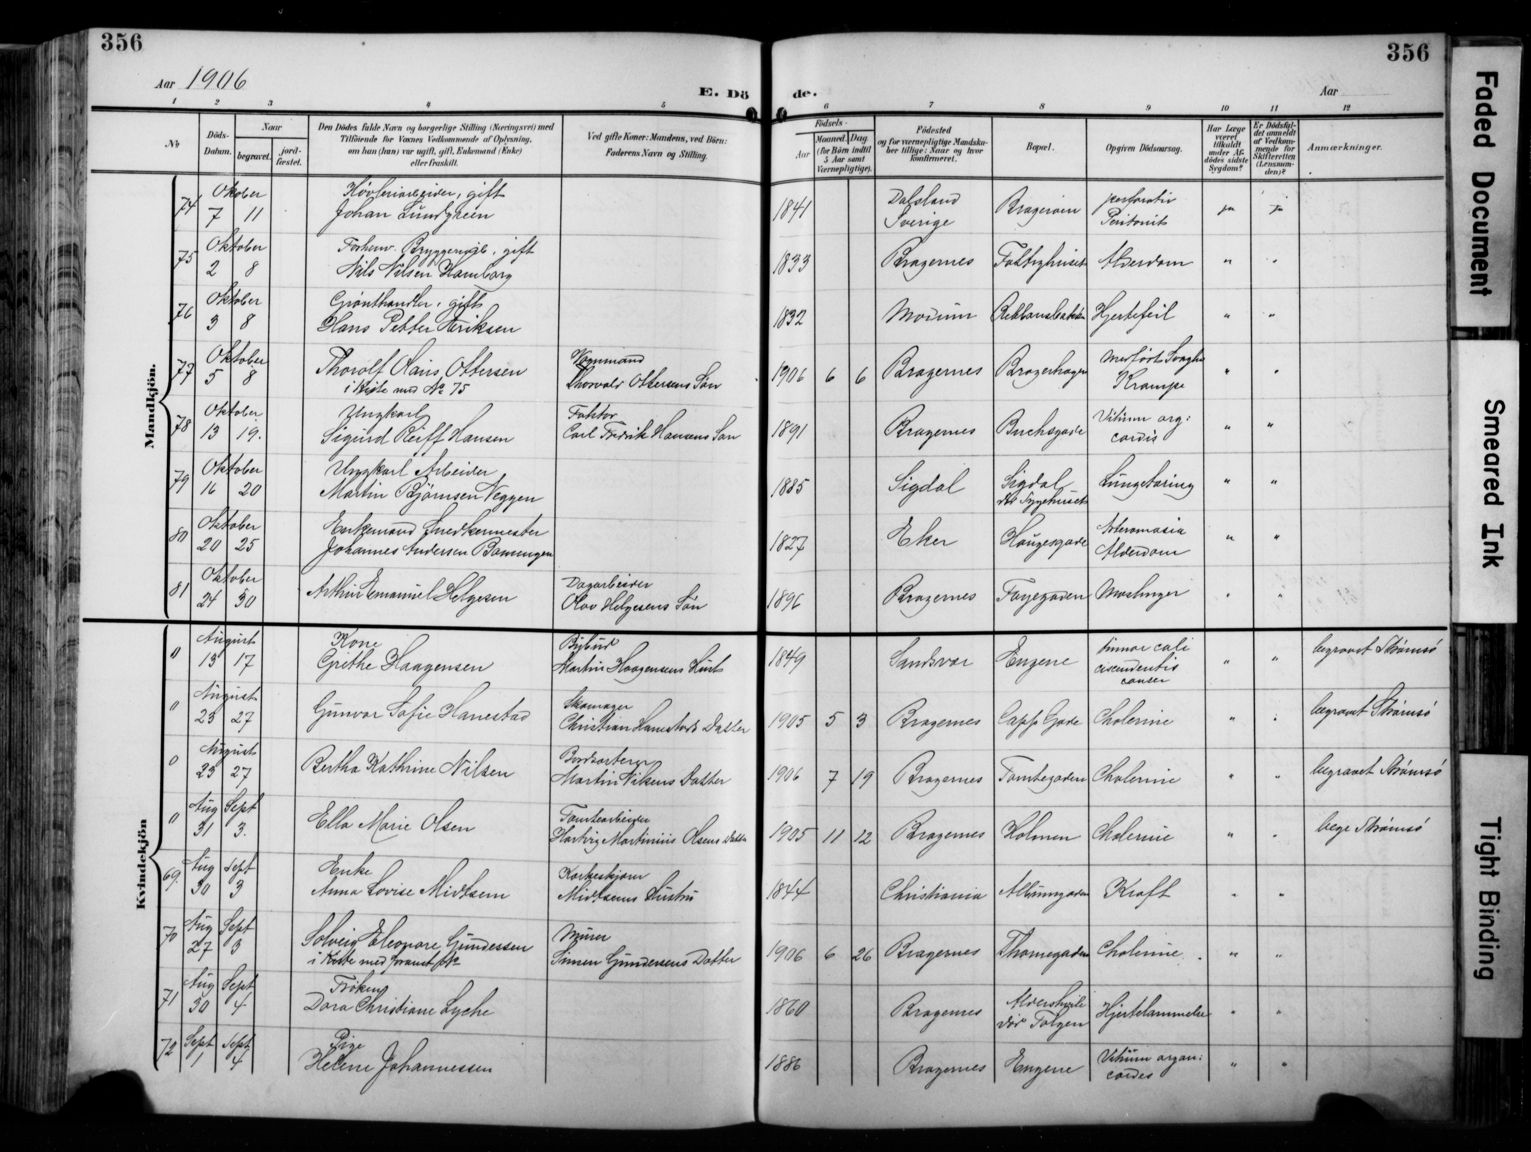 356
356
Aar 1906
E. Dö
de.
Aar
1 2 3 4 5
6 7 8 9 10 11 12
No
Döds-Datum.
Naar
begravet.
jordfæstet.
Den Dödes fulde Navn og borgerlige Stilling (Næringsvei) med
Tilföiende for Voxnes Vedkommende af Oplysning,
om han (hun) var ugift, gift, Enkemand (Enke)
eller fraskilt.
Ved gifte Koner: Mandens, ved Börn:
Faderens Navn og Stilling.
Födsels-
Aar
Maaned Dag
(for Börn indtil
5 Aar samt
Værnepligtige).
Födested
og for værnepligtige Mandskaber tillige: Naar og hvor
konfirmeret.
Bopæl.
Opgiven Dödsaarsag.
Har Læge
været
tilkaldt
under Afdödes sidste
Sygdom?
Er Dödsfaldet anmeldt
af Vedkommende for
Skifteretten
(Lensmanden)?
Anmærkninger.
Mandkjön.
74 Oktober 7 11 Høvleriarbeider, gift
Johan Lundgreen 1841 Dalsland
Sverige Brageröen perforativ
Peritonit ja ja
75 Oktober 2 8 Forhenv. Bryggeriarb., gift
Nils Nilsen Hamborg 1833 Bragernes Fattighuset Alderdom " "
76 Oktober 3 8 Grønthandler, gift
Hans Petter Eriksen 1832 Modum Hjertefeil " "
77 Oktober 5 8 Thorolf Hans Ottersen
i Kiste med No 75 Vognmand
Thorvald Ottersens Søn 1906 6 6 Bragernes Bragerhagen medfødt Svaghed
Krampe " "
78 Oktober 13 19. Ungkarl
Sigurd Reiff Hansen Faktor
Carl Fredrik Hansens Søn 1891 Bragernes Buchsgade Vitium org:
cordis " "
79 Oktober 16 20 Ungkarl Arbeider
Martin Bjørnsen Veggen 1885 Sigdal Sigdal
Sygehuset Lungetæring " "
80 Oktober 20 25 Enkemand Snedkermester
Johannes Andersen 1827 Eker Haugesgade Ateromasia
Alderdom " "
81 Oktober 24 30 Arthur Emanuel Helgesen Dagarbeider
Olav Helgesens Søn 1896 Bragernes Fayegaden Meslinger " "
Kvindekjön
0 August 13 17 Kone
Grethe Haagensen Bybud
Martin Haagensens Hustr 1849 Sandsvær Engene tumor coli
ascendentis
cancer " " begravet Strømsø
0 August 23 27 Gunvor Sofie Hanestad Skomager
Christian Hanestads Datter 1905 5 3 Bragernes Capp. Gade Cholerine " " begravet Strømsø
0 August 23 27 Bertha Kathrine Nilsen Bordsorterer
Martin Nilsens Datter 1906 7 19 Bragernes Tomtegaden Cholerine " " begravet Strømsø
0 Aug 31 Sept 3. Ella Marie Olsen Tomtearbeider
Hartvig Martinius Olsens Datter 1905 11 12 Bragernes Holmen Cholerine " " begr Strømsø
69. Aug 30 Sept 3 Enke
Anna Lovise Midtsem
Midtsems Hustru 1844 Christiania Albumgaden Kræft " "
70 Aug 27 Sept 3 Solveig Eleonore Gundersen
i Kiste med Murer
Simen Gundersens Datter 1906 6 26 Bragernes Thornegaden Cholerine " "
71 Aug 30 Sept 4 Frøken
Dora Christiane Lyche 1860 Bragernes Aldershvile
Hjertelammelse " "
72 Sept 1 Sept 4 Pige
Helene Johannessen 1886 Bragernes Engene Vitium organ:
cordis " "
Faded Document
Smeared Ink
Tight Binding